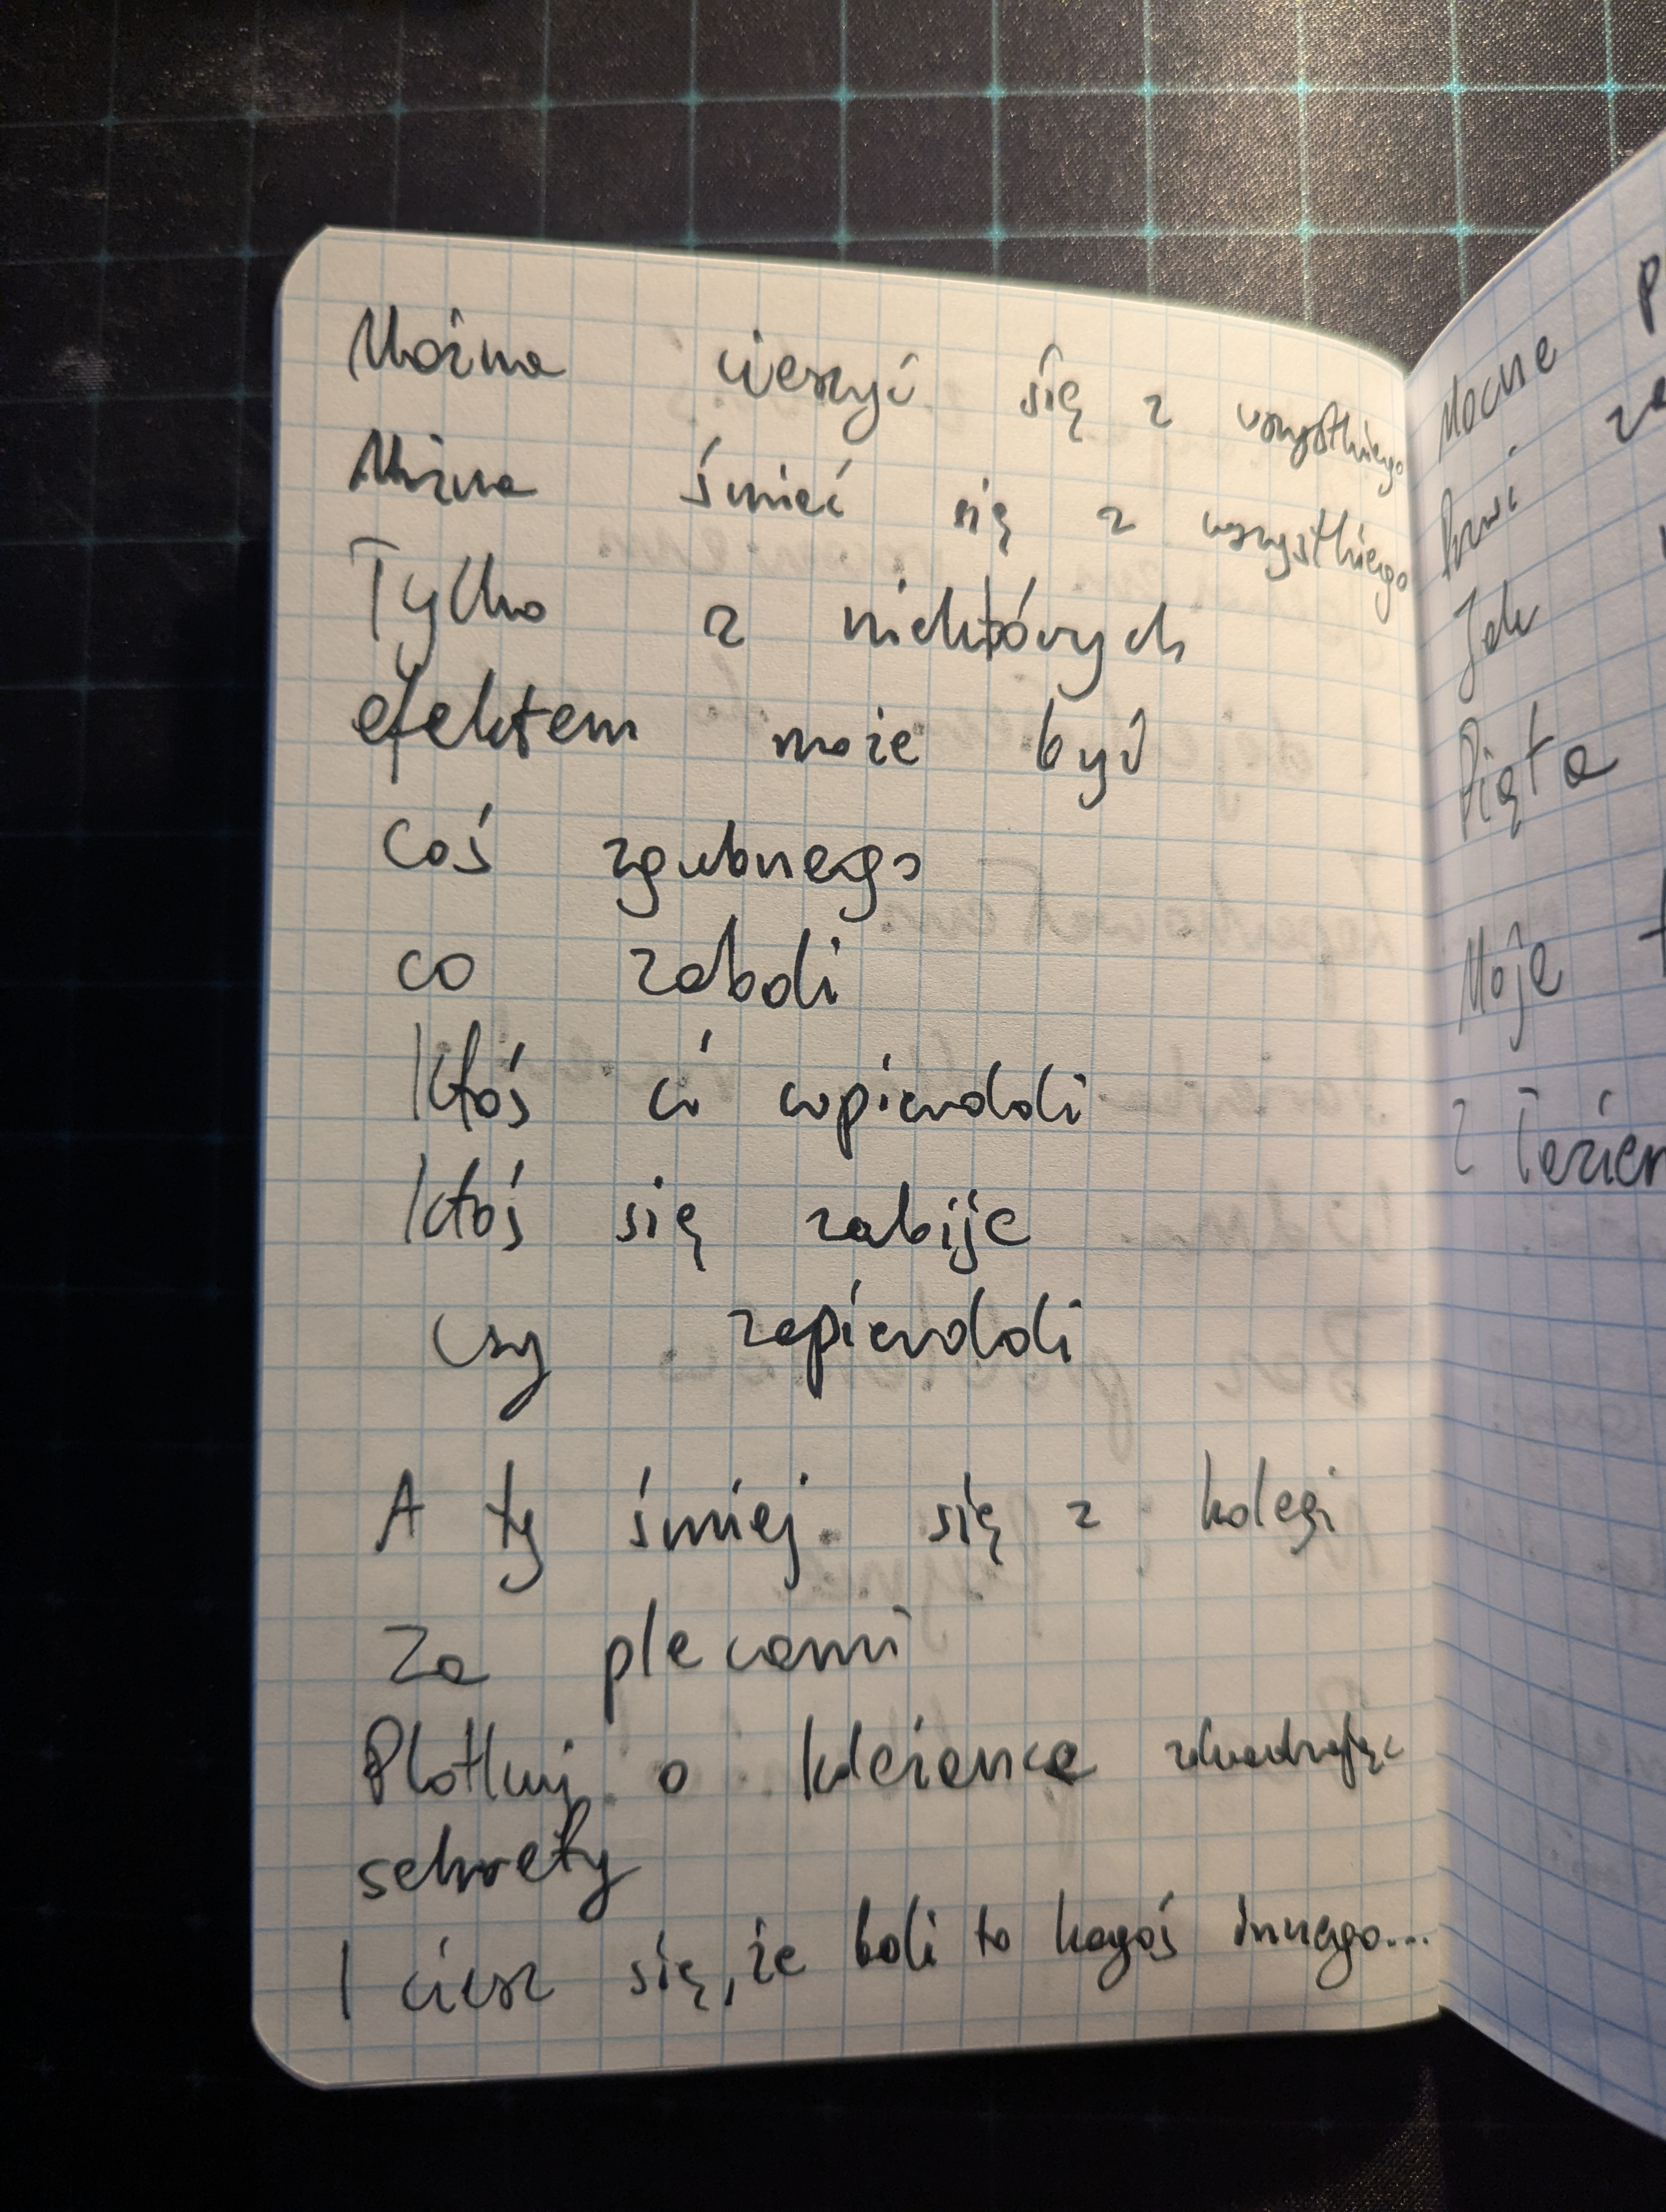 Można cieszyć się z wszystkiego
Można śmieć się z wszystkiego
Tylko z niektórych
efektem może być
Coś zgubnego
co zaboli
Ktoś ci wpierdoli
Ktoś się zabije
czy zapierdoli
A ty śmiej się z kolegi
Za plecami
Plotkuj o koleżence zdradzając
sekrety
I ciesz się, że boli to kogoś innego...
Mocne
Jak
Pięta
Moje